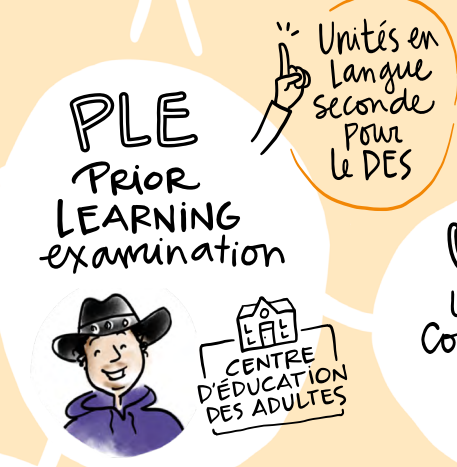 PLE
PRIOR
LEARNING
examination
Unités en
Langue
seconde
pour
le DES
CENTRE
D'ÉDUCATION
DES ADULTES